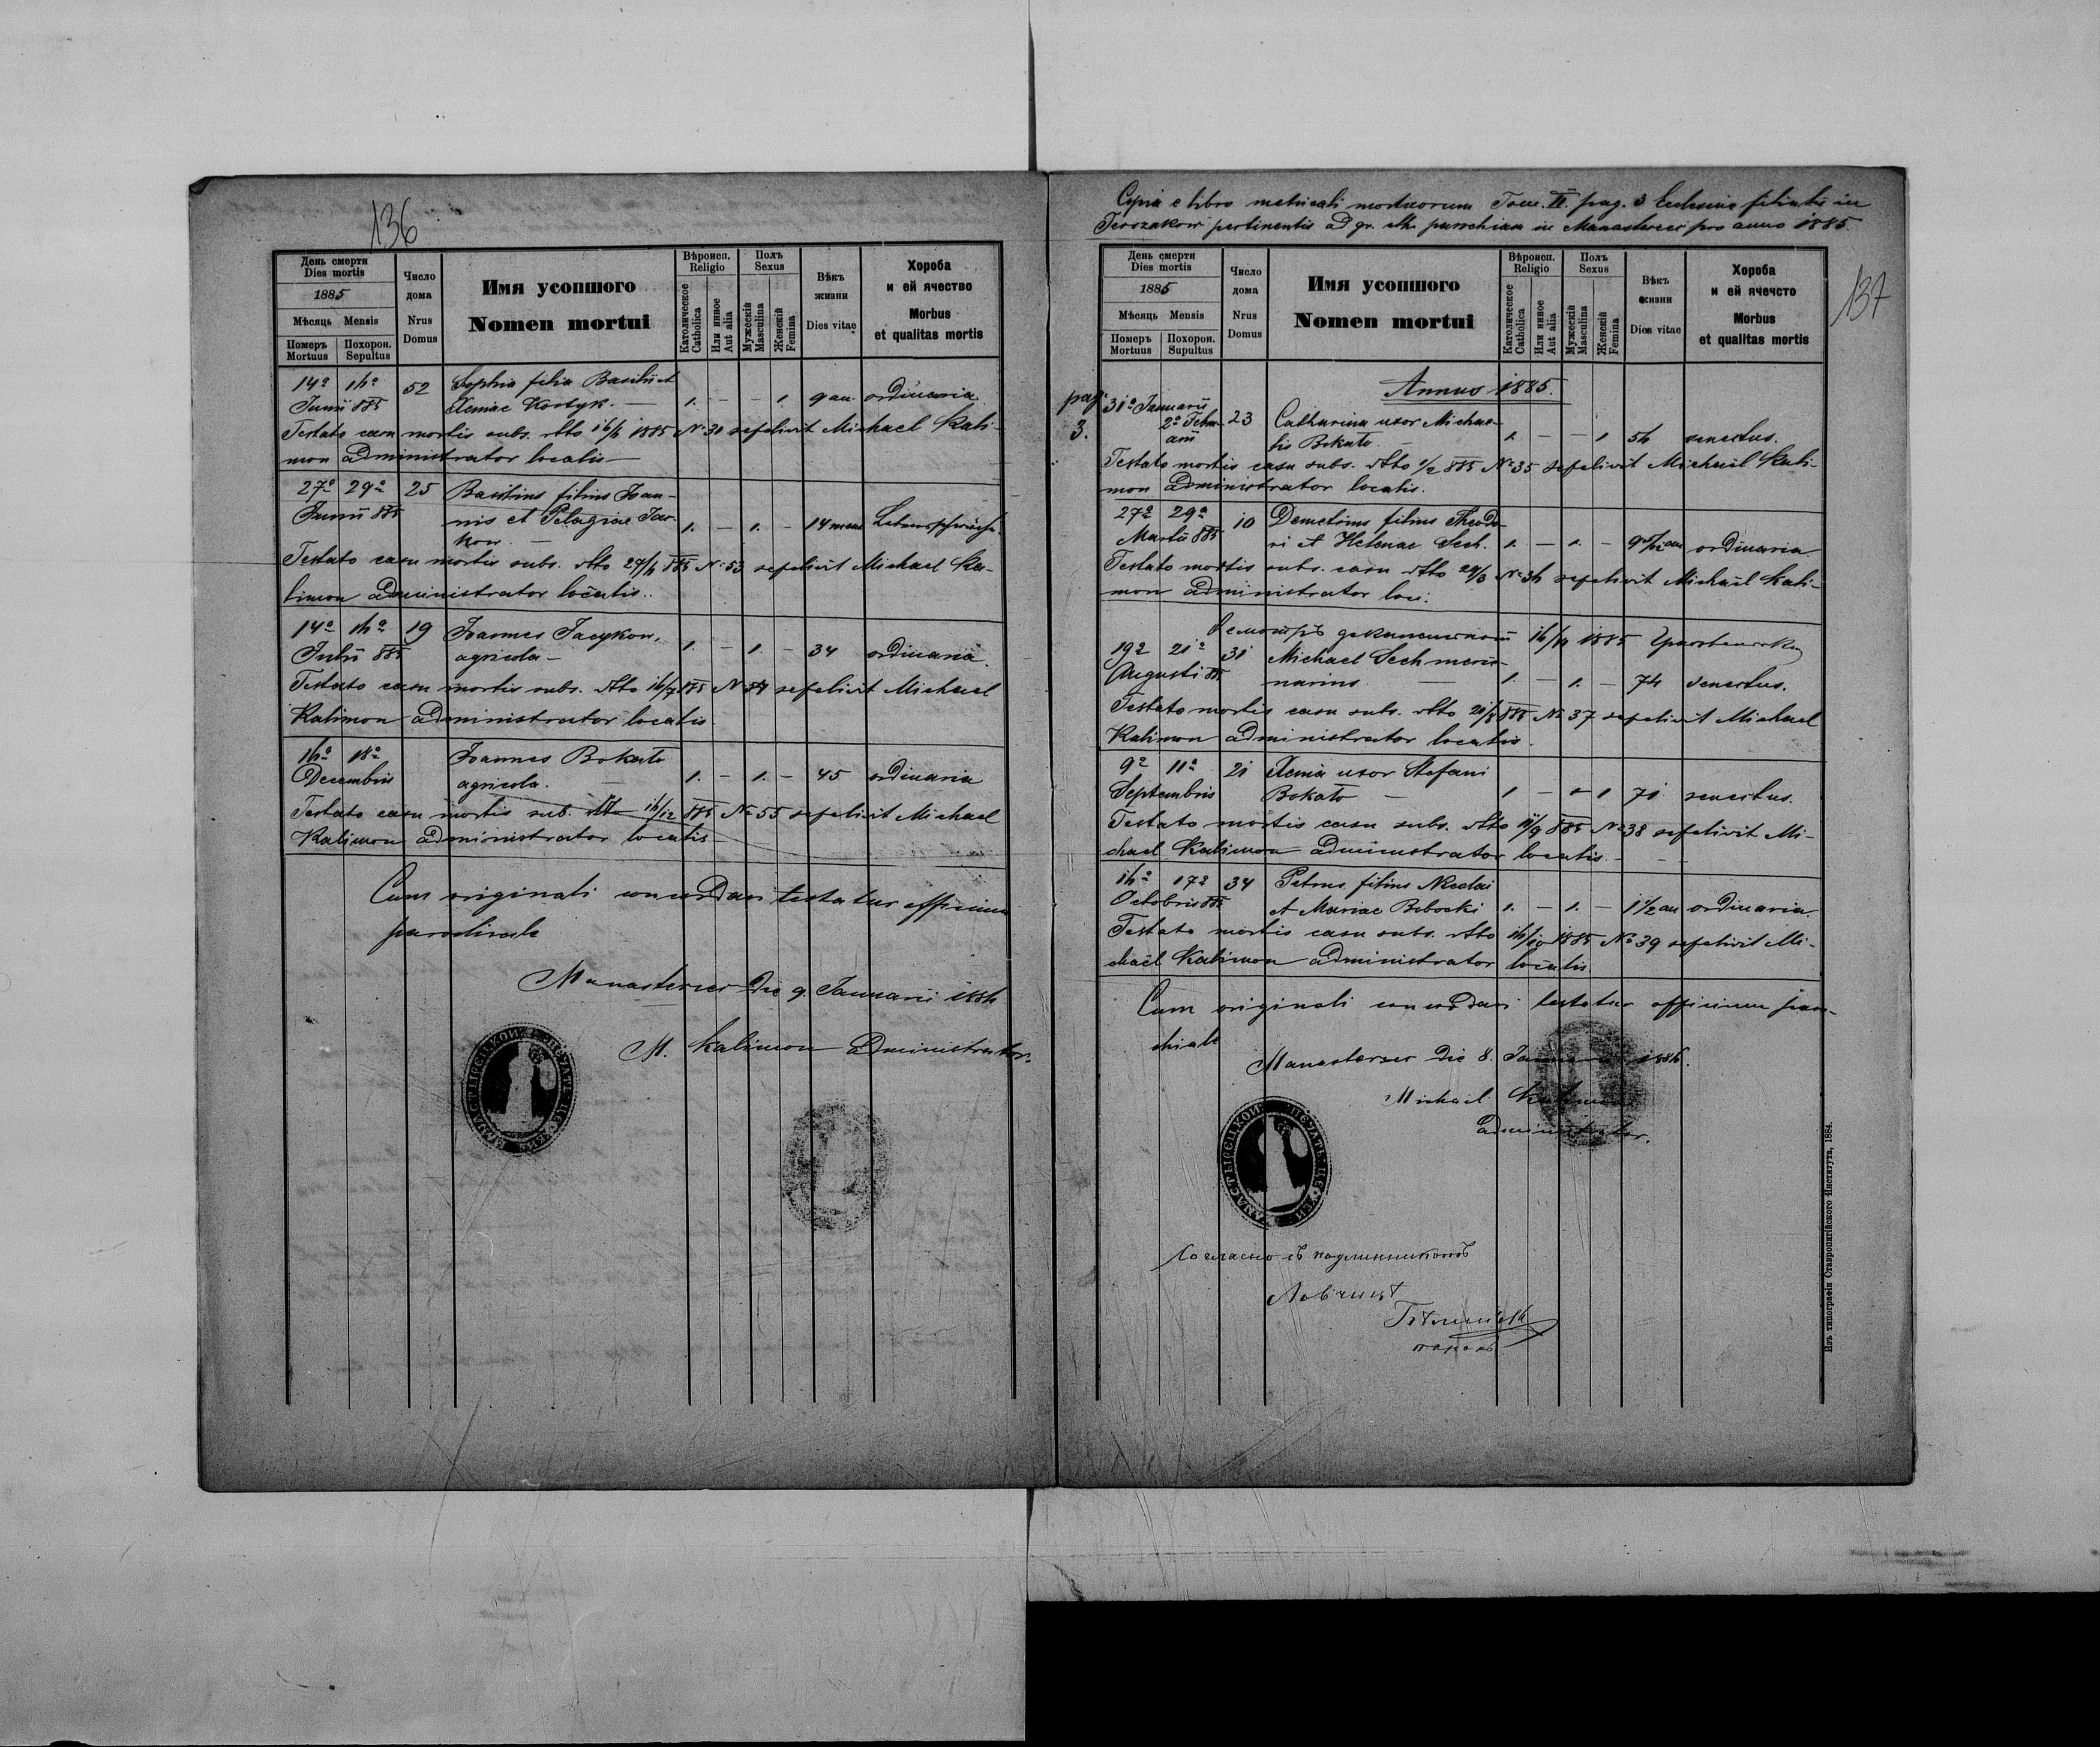 136
День смерти
Dies mortis
1885
Мѣсяць Mensis
Померъ Mortuus
Похорон. Sepultus
Число дома
Nrus Domus
Имя усопшого
Nomen mortui
Вѣроисп.
Religio
Католическое Catholica
Или инное Aut alia
Полъ
Sexus
Мужескій Masculina
Женскій Femina
Вѣкъ жизни
Dies vitae
Хороба и ей ячество
Morbus et qualitas mortis
14a 16a 52 Sophia filia Basilii et
Junii 885 Xeniae Kostyk. — 1. — — 1. 9 an. ordinaria
Testato casu mortis subs. dtto 16/6 1885 No 31 sepelivit Michael Kali-
mon administrator localis —
27a 29a 25 Basilius filius Joan-
Junii 885 nis et Pelagiae Jac-
kow. — 1. — 1. — 14 mens
Testato casu mortis subs. dtto 885 No 53 sepelivit Michael Ka-
limon administrator localis.
14a 16a 19 Joannes Jacykow,
Julii 885 agricola — 1. — 1. — 34 ordinaria.
Testato casu mortis subs. dtto 16/7 885 N 54 sepelivit Michael
Kalimon administrator localis.
16a 18a Joannes Bokalo
Decembris agricola. 1. — 1. — 45 ordinaria
Testato casu mortis sub. dtto 16/12 885 No 55 sepelivit Michael
Kalimon administrator localis
Cum originali concordari testatur officium
parochiale
Manasterzec die 9. Januarii 1886
M. Kalimon administrator.
Copia e libro metricali mortuorum Tom. II. pag. 3 Ecclesiae filialis in
pertinentis ad gr. cth. parochiam in Manasterzec pro anno 1885.
137
День смерти
Dies mortis
1885
Мѣсяць Mensis
Померъ Mortuus
Похорон. Supultus
Число дома
Nrus Domus
Имя усопшого
Nomen mortui
Вѣроисп.
Religio
Католическое Catholica
Или инное Aut alia
Полъ
Sexus
Мужескій Masculina
Женскій Femina
Вѣкъ жизни
Dies vitae
Хороба и ей ячечсто
Morbus et qualitas mortis
Annus 1885.
pag. 3.
31a Januarii
2a Februarii 23 Catharina uxor Michae-
lis Bokalo. — 1. — — 1 56 senectus.
Testato mortis casu subs. dtto 1/2 885 No 35 sepelivit Michaël Kali-
mon administrator localis.
27a 29a 10 Demetrius filius Theodo-
Martii 885 ri et Helenae Sech. 1. — 1. — ordinaria
Testato mortis subs. casu dtto 29/3 No 36 sepelivit Michaël Kali-
mon administrator loci.
16/10 1885
19a 21a 31 Michael Sech merce-
Augusti 885 narius. — 1. — 1. — 74 senectus.
Testato mortis casu subs. dtto 21/8 885 No 37 sepelivit Michael
Kalimon administrator localis.
9a 11a 21 Xenia uxor Stefani
Septembris Bokalo — 1 — — 1 71. senectus.
Testato mortis casu subs. dtto 11/9 885 No 38 sepelivit Mi-
chael Kalimon administrator localis. — —
16a 17a 34 Petrus filius Nicolai
Octobris 885 et Mariae Bobocki 1. — 1. — 1 1/2 an ordinaria.
Testato mortis casu subs. dtto 16/10 1885 No 39 sepelivit Mi-
chaël Kalimon administrator localis.
Cum originali concordari testatur officium paro-
chiale
Manasterzec die 8. Januarii 1886.
Michael Kalimon
administrator.
Согласно съ подлинникомъ
Изъ типографіи Ставропигійского Института, 1884.